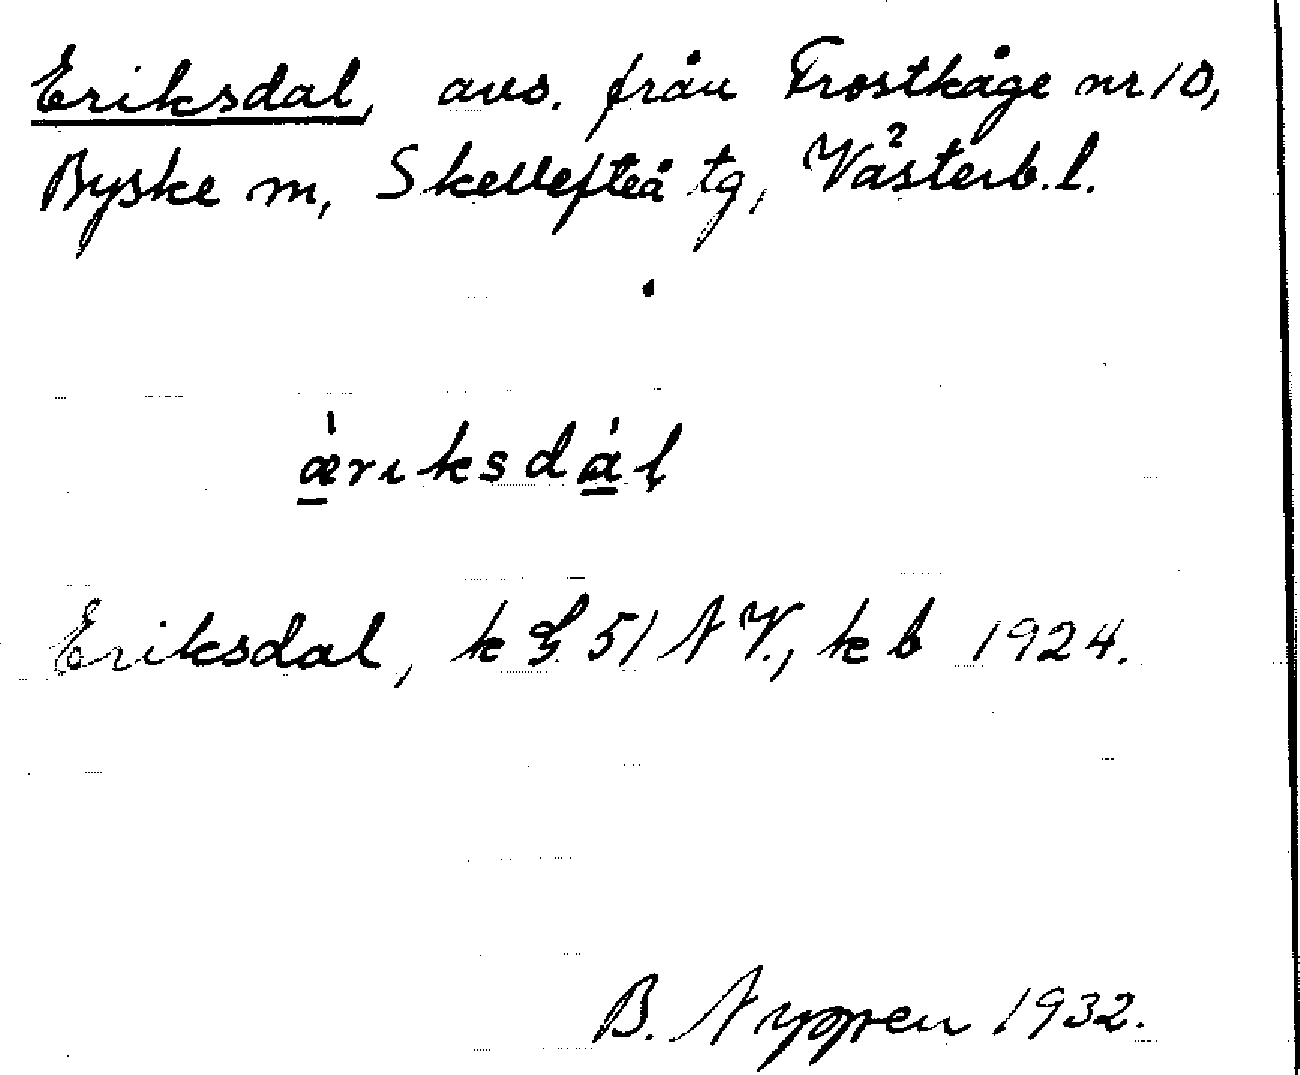 Eriksdal, avs. från Frostkåge nr 10,
Byske sn, Skellefteå tg, Västerb. l.
ǽriksdál
Eriksdal, k bl 51 NV., kb 1924.
B. Nygren 1932.